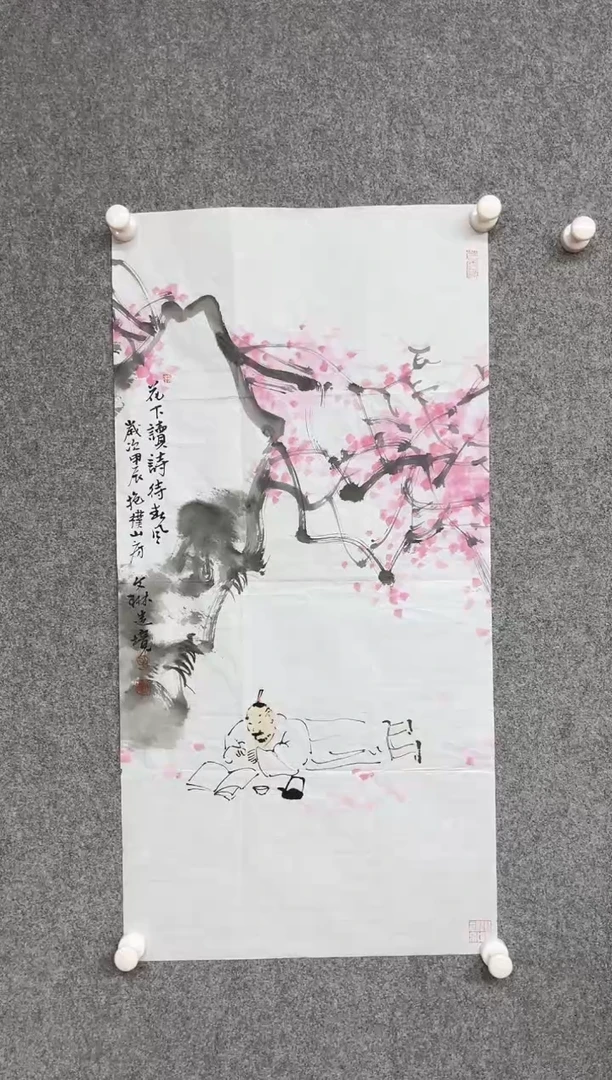 花下讀詩待春風
歲次甲辰 抱樸山房 琳造境